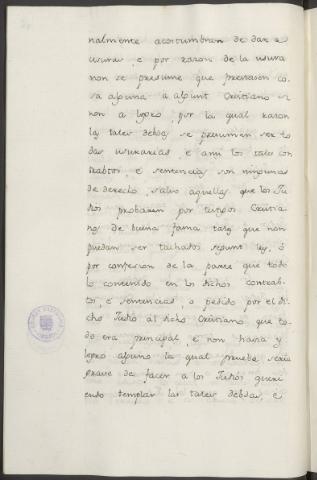 nalmente acostumbran de dar a
usuras, e por razon de la usura
non se presume que prestason co
sa alguna a algunt Cristiano si
non a logro, por la qual razon
las tales debdas se presumen ser to
das usurarias, e ansi los tales con
trabtos, e sentencias son ningunas
de derecho, salvo aquellas que los Ju
dios probaren por testigos Cristia
nos de buena fama tales que non
puedan ser tachados segunt ley, ó
por confesion de la parte que todo
lo contenido en los dichos contrab
tos, e sentencias, o pedido por el di
cho Judio al dicho Cristiano que to
do era principal, e non havia y
logro alguno la qual prueba seria
grave de facer a los Judios queri
endo templar las tales debdas, e